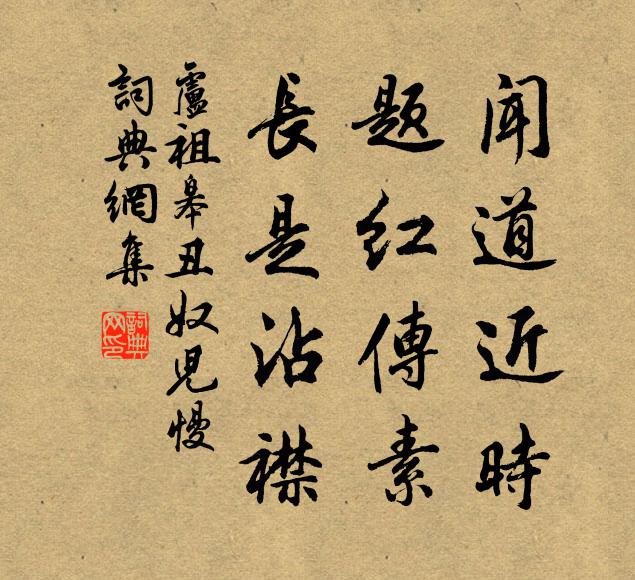 聞道近時
題紅傳素
長是沾襟
盧祖皋丑奴兒慢
詞典網集
詞典网印